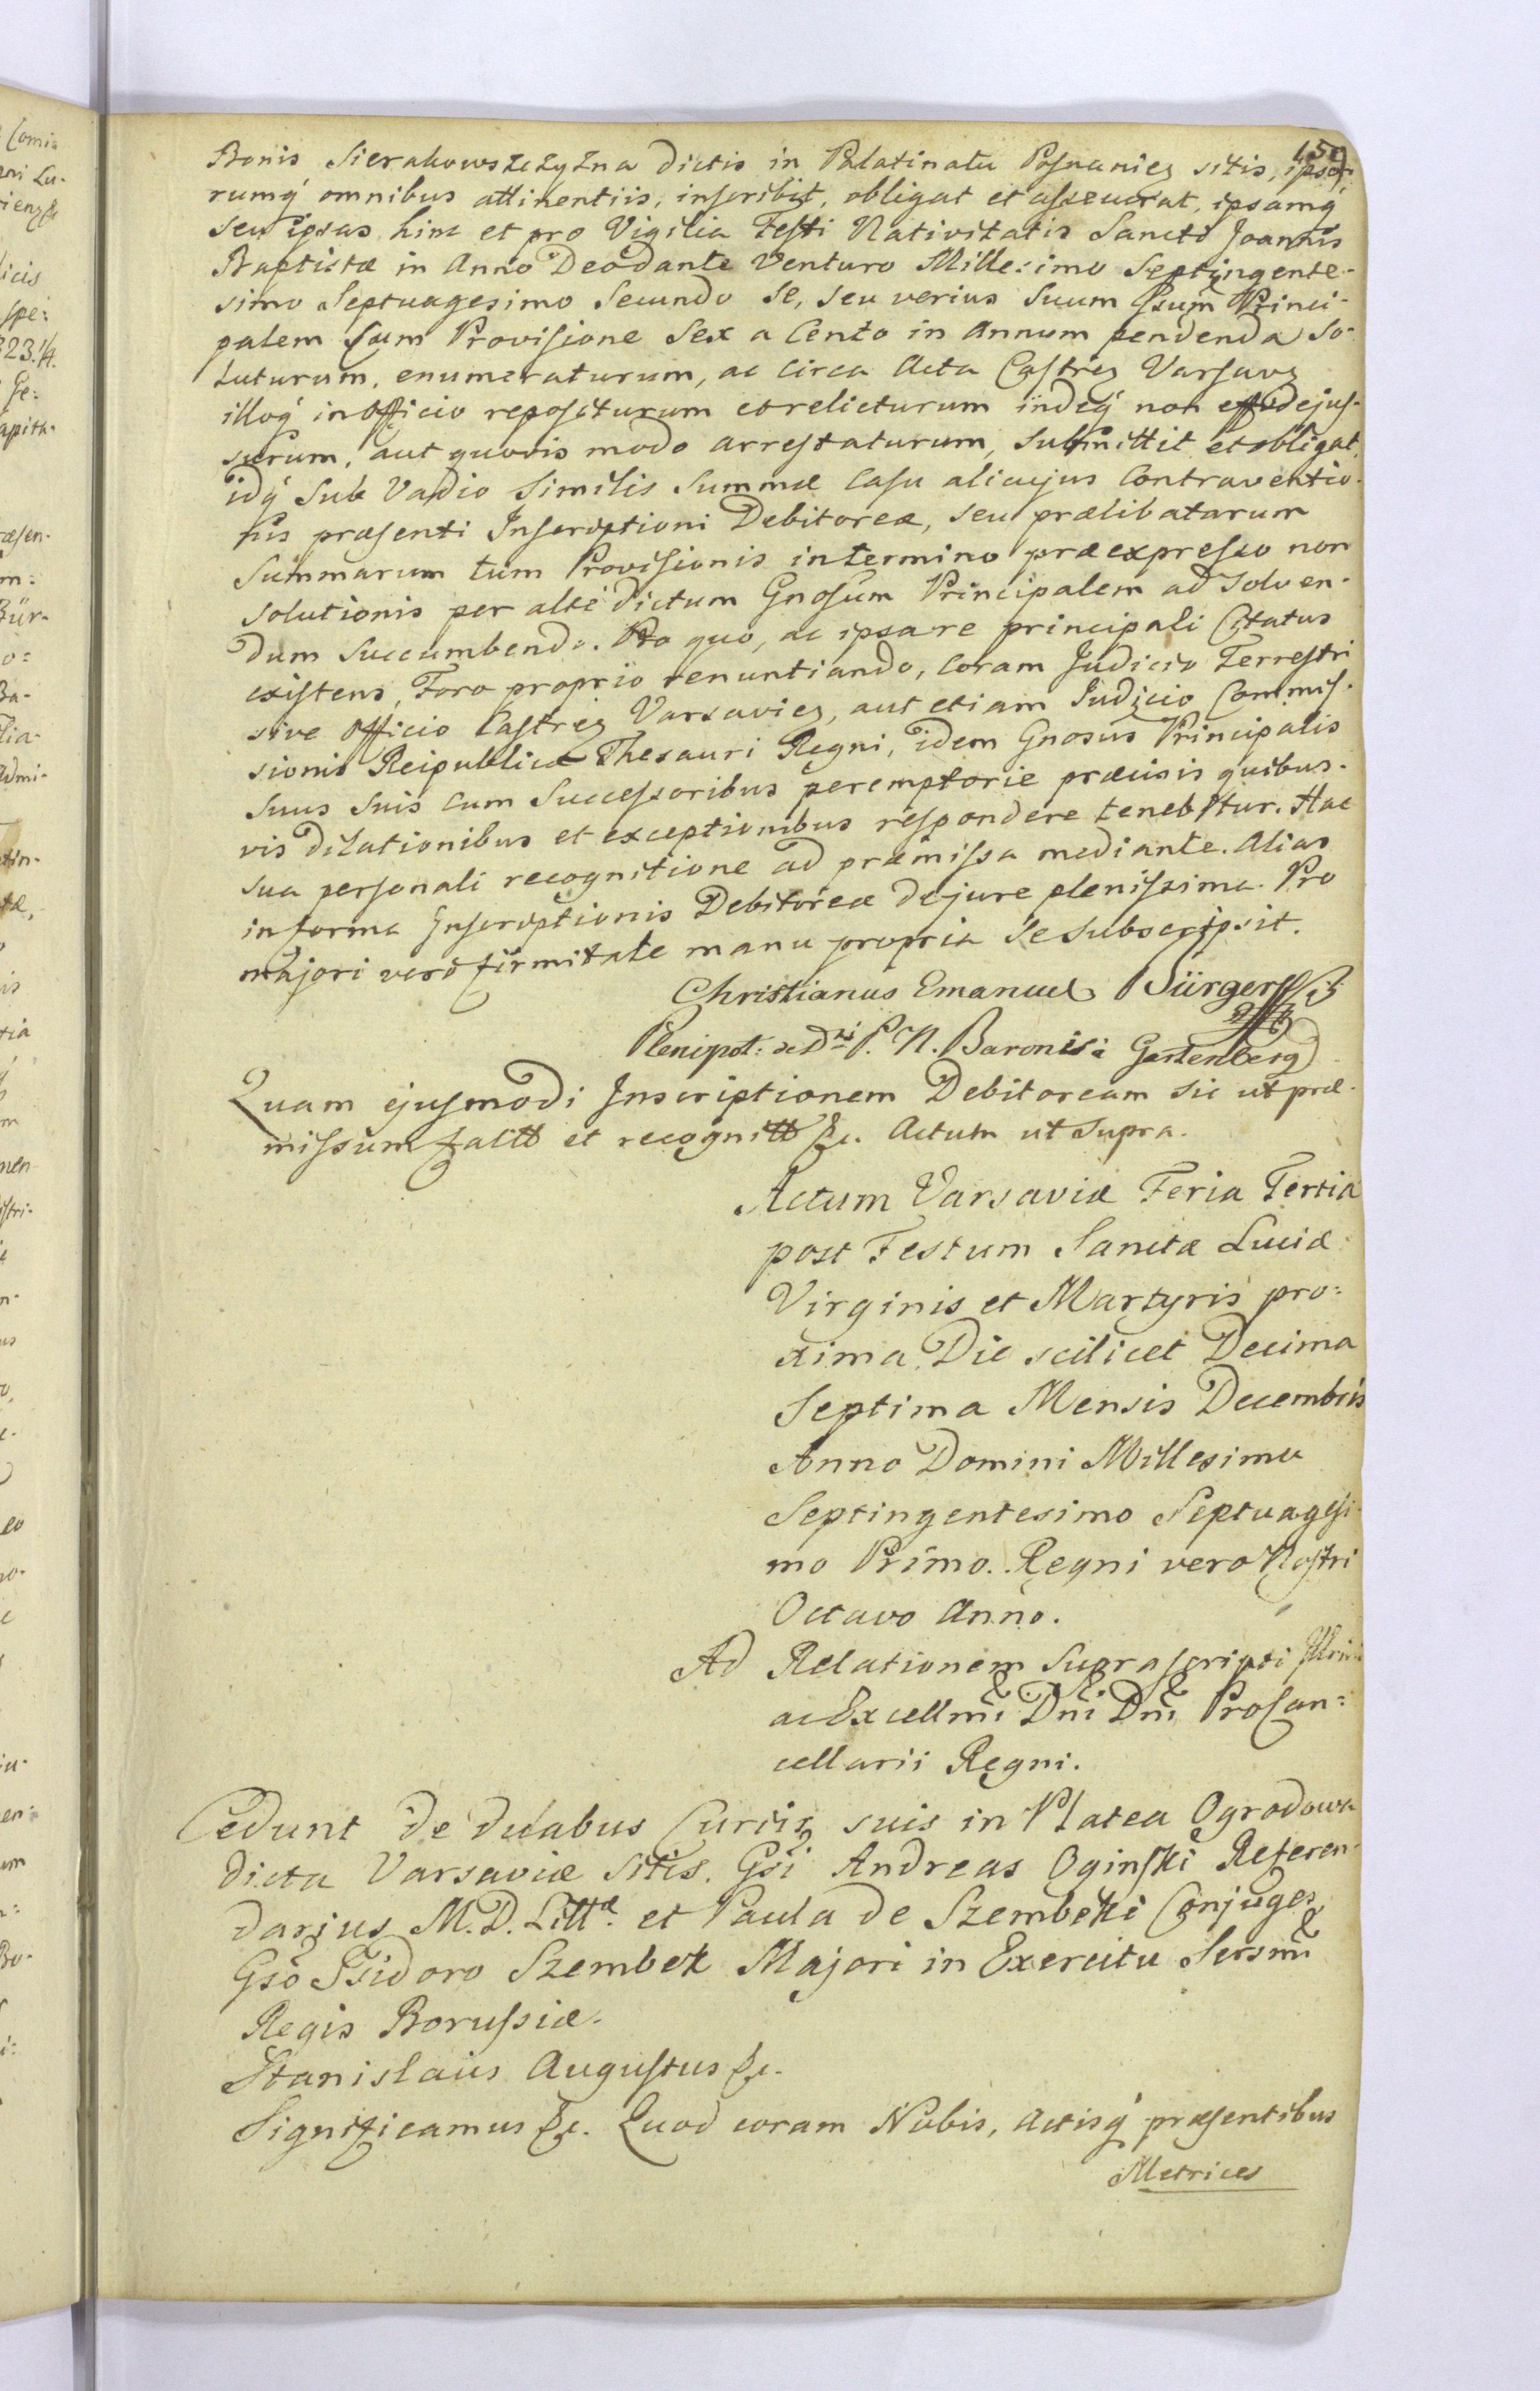 150
Bonis Sierakowszczyzna dictis in Palatinatu Posnanien sitis, ipso-
rumq́ omnibus attinentiis, inscribit, obligat et asseverat, ipsamq́
seu ipsas hinc et pro Vigilia Festi Nativitatis Sancti Joannis
Baptistæ in Anno Deodante Venturo Millesimo Septingente-
simo Septuagesimo Secundo se, seu verius Suum Gsum Princi-
palem Cum Provisione Sex a Cento in Annum pendenda So-
luturum, enumeraturum, ac circa Acta Castren Varsavien
illoq́ in officio repositurum et relicturum indeq́ non
surum, aut quovis modo arrestaturum, submittit et obligat,
idq́ Sub Vadio Similis Summæ Casu alicujus Contraventio-
nis præsenti Inscriptioni Debitoreæ, seu prælibatarum
Summarum tum Provisionis in termino præexpresso non
solutionis per altè dictum Gnosum Principalem ad solven-
dum Succumbendo. Pro quo, ac ipsa re principali Citatus
existens, Foro proprio renuntiando, Coram Judicio Terrestri
sive Officio Castren Varsavien, aut etiam Judicio Commis-
sionis Reipublicæ Thesauri Regni, idem Gnosus Principalis
Suus Suis cum Successoribus peremptorie præcisis quibus-
vis dilationibus et exceptionibus respondere tenebitur. Hac
sua personali recognitione ad præmissa mediante. Alias
in forma Inscriptionis Debitoreæ de jure plenissima. Pro
majori vero firmitate manu propria se subscripsit.
Christianus Emanuel Bürger
Plenipot: P. N. Baronis à Gartenberg
Quam ejusmodi Inscriptionem Debitoream sic ut præ-
missum et &c. Actum ut Supra.
Actum Varsaviæ Feria Tertia
post Festum Sanctæ Luciæ
Virginis et Martyris pro=
xima, Die scilicet Decima
Septima Mensis Decembris
Anno Domini Millesimo
Septingentesimo Septuagesi-
mo Primo. Regni vero Nostri
Octavo Anno.
Ad Relationem Suprascripti
ac Excellmi Dni Dni ProCan=
cellarii Regni.
Cedunt de duabus Curiis suis in Platea Ogrodowa
dicta Varsaviæ Sitis. Gsi Andreas Oginski Referen-
darius M. D. Littæ. et Paula de Szembeki Conjuges
Gso Isidoro Szembek Majori in Exercitu Sersmi
Regis Borussiæ.
Stanislaus Augustus &c.
Significamus &c. Quod coram Nobis, Actisq́ præsentibus
Metrices